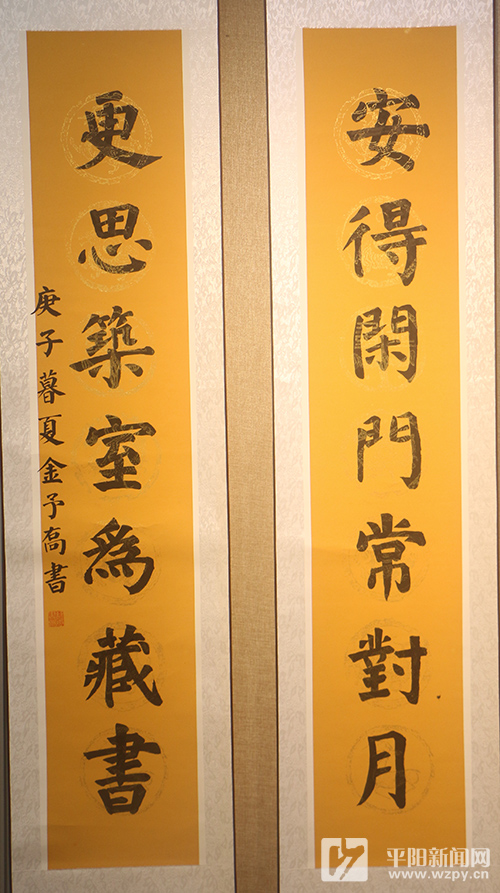 安得閑門常對月
更思築室為藏書
庚子暮夏金予高書
平阳新闻网
www.wzpy.cn